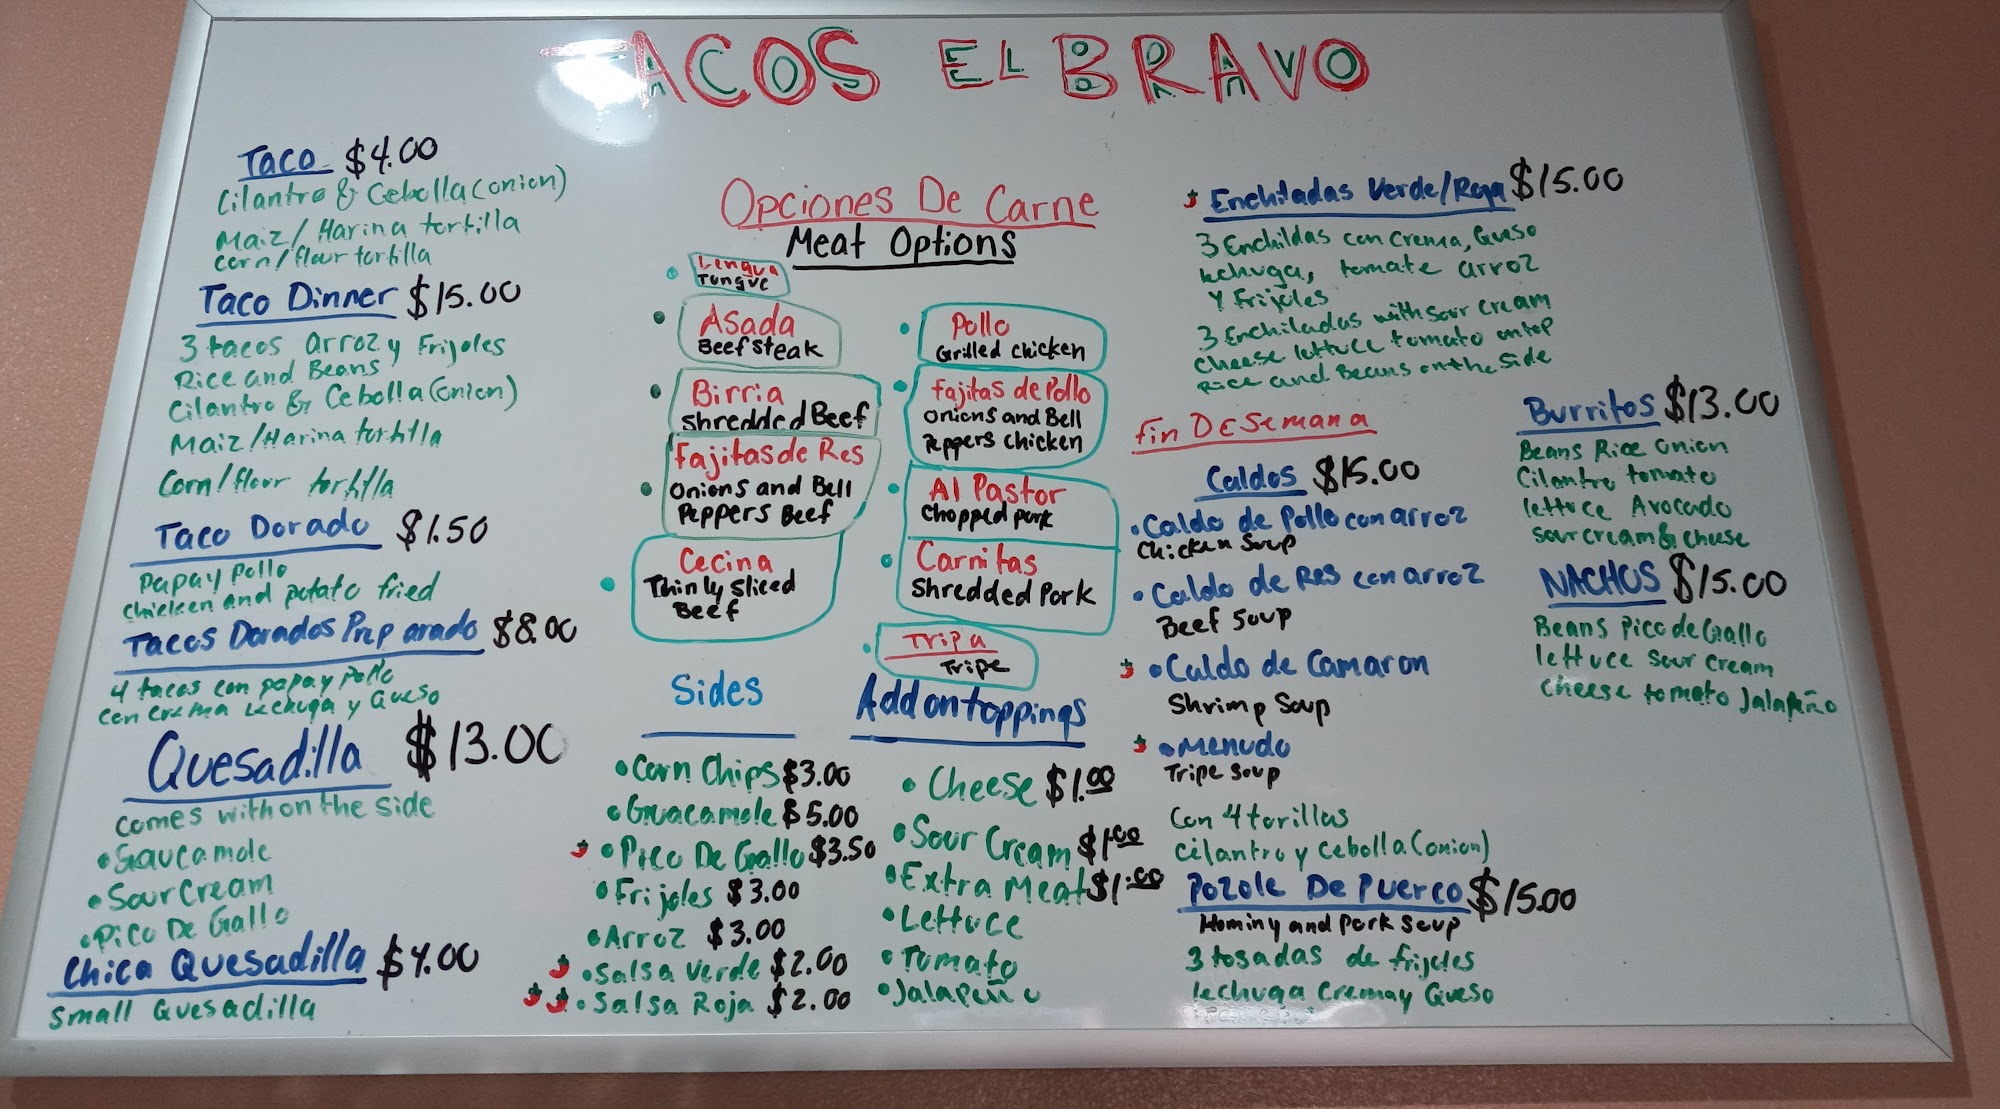 TACOS EL BRAVO
Taco $4.00
Cilantro & Cebolla (onion)
Maiz / Harina tortilla
corn/flour tortilla
Taco Dinner $15.00
3 tacos arroz y Frijoles
Rice and Beans
Cilantro & Cebolla (onion)
Maiz/Harina tortilla
Corn/flour tortilla
Taco Dorado $1.50
papa y pollo
chicken and potato fried
Tacos Dorados Preparado $8.00
4 tacos con papa y pollo
con crema lechuga y Queso
Quesadilla $13.00
comes with on the side
• Gaucamole
• Sour Cream
• Pico De Gallo
Chica Quesadilla $4.00
Small Quesadilla
Opciones De Carne
Meat Options
• Lengua
Tongue
• Asada
Beef steak
• Birria
Shredded Beef
• Fajitas de Res
Onions and Bell
Peppers Beef
• Cecina
Thinly Sliced
Beef
• Pollo
Grilled chicken
• Fajitas de Pollo
Onions and Bell
Peppers chicken
• Al Pastor
Chopped pork
• Carnitas
Shredded Pork
• Tripa
Tripe
Sides
• Corn Chips $3.00
• Guacamole $5.00
• Pico De Gallo $3.50
• Frijoles $3.00
• Arroz $3.00
• Salsa Verde $2.00
• Salsa Roja $2.00
Add on toppings
• Cheese $1.00
• Sour Cream $1.00
• Extra Meat $1.00
• Lettuce
• Tomato
• Jalapeño
Enchiladas Verde/Roja $15.00
3 Enchildas con crema, Queso
lechuga, tomate arroz
y Frijoles
3 Enchiladas with sour cream
cheese lettuce tomato on top
Rice and Beans on the side
Fin De Semana
Caldos $15.00
• Caldo de Pollo con arroz
Chicken Soup
• Caldo de Res con arroz
Beef Soup
• Caldo de Camaron
Shrimp Soup
• Menudo
Tripe Soup
Con 4 torillas
cilantro y cebolla (onion)
Pozole De Puerco $15.00
Hominy and Pork Soup
3 tosadas de frijoles
lechuga Crema y Queso
Burritos $13.00
Beans Rice onion
Cilantro tomato
lettuce Avocado
sour cream & cheese
NACHOS $15.00
Beans Pico de Gallo
lettuce sour cream
cheese tomato Jalapeño